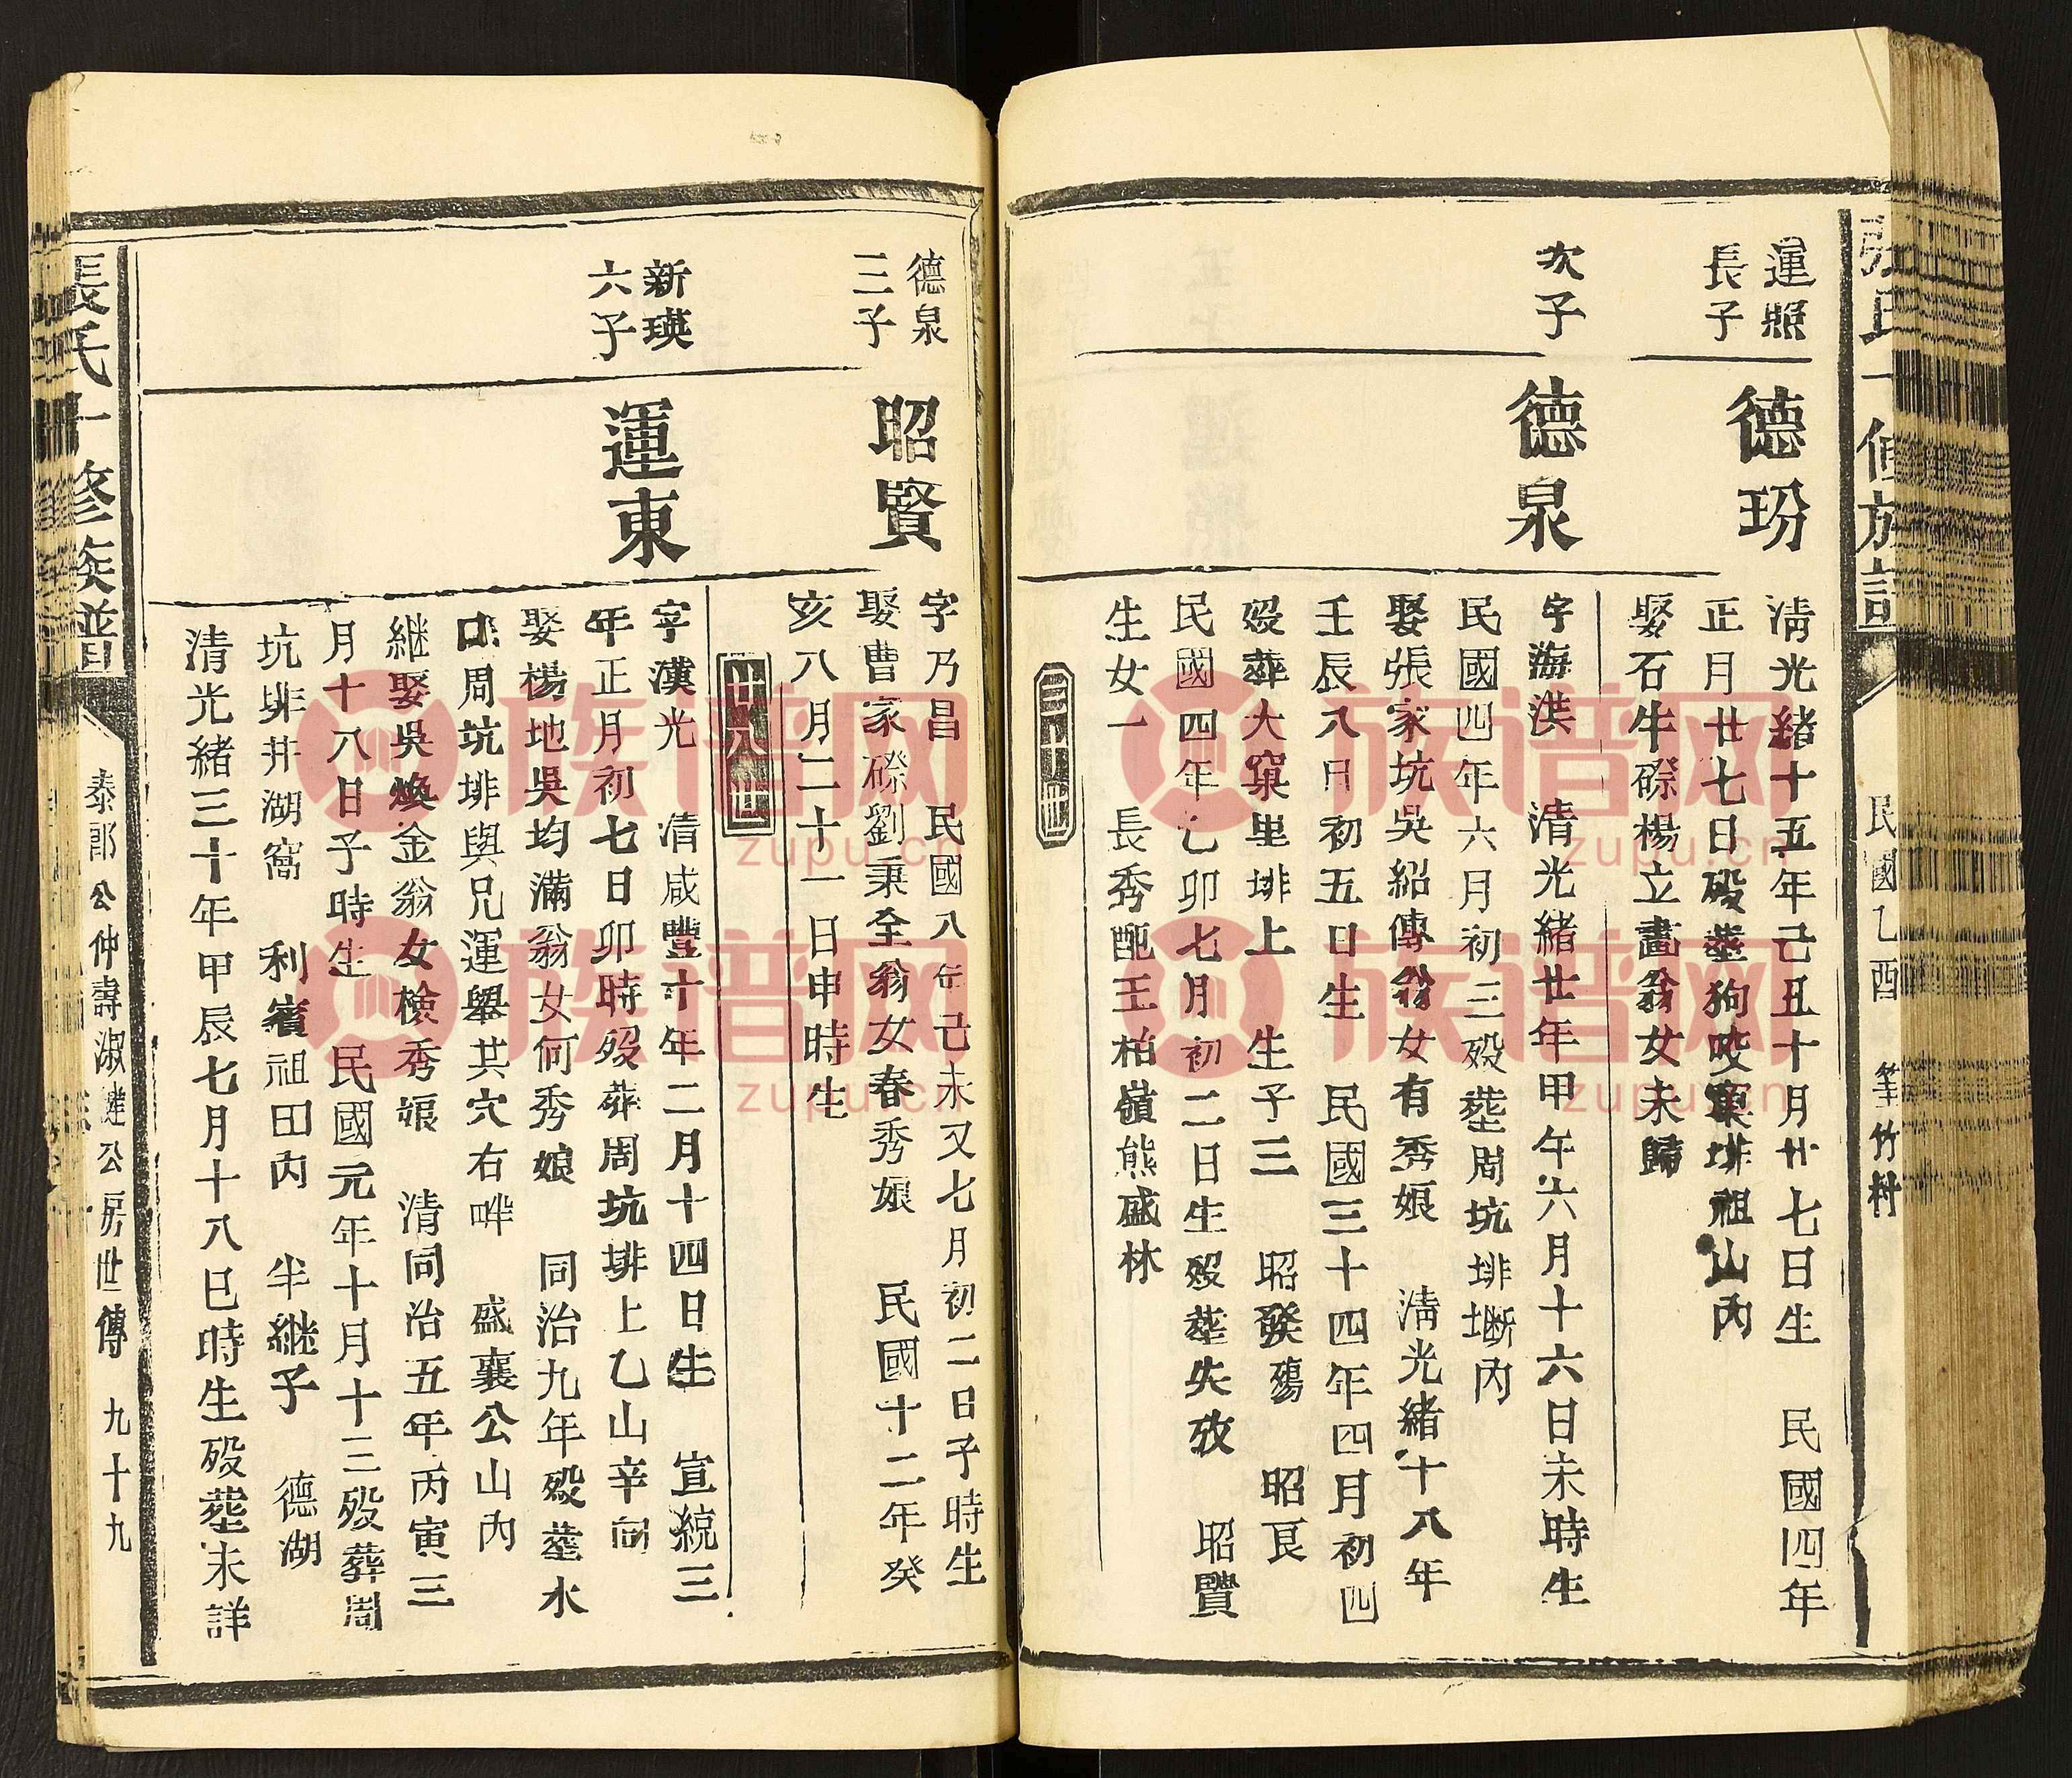 運照
長子
德玢
清光緒十五年己丑十月廿七日生 民國四年
正月廿七日殁塟狗咬窠排祖山內
娶石牛磜楊立畵翁女未歸
次子
德泉
字海洪 清光緒廿年甲午六月十六日未時生
民國四年六月初三殁塟周坑排塹內
娶張家坑吳紹傳翁女有秀娘 清光緒十八年
壬辰八日初五日生 民國三十四年四月初四
殁葬大窠里排上 生子三 昭發殤 昭良
民國四年乙卯七月初二日生殁塟失攷 昭賢
生女一 長秀配王柏嶺熊盛林
三十世
民國乙酉 筆竹村
德泉
三子
昭賢
字乃昌 民國八年己未又七月初二日子時生
娶曹家磜劉秉全翁女春秀娘 民國十二年癸
亥八月二十一日申時生
廿八世
新瑛
六子
運東
字漢光 清咸豐十年二月十四日生 宣統三
年正月初七日卯時殁葬周坑排上乙山辛向
娶楊地吳均滿翁女何秀娘 同治九年殁塟水
周坑排與兄運舉共穴右畔 盛襄公山內
継娶吳煥金翁女檢秀娘 清同治五年丙寅三
月十八日子時生 民國元年十月十三殁葬周
坑排井湖窩 利賓祖田內 半継子 德湖
清光緒三十年甲辰七月十八巳時生殁塟未詳
張氏十修族譜
泰郎公仲壽淑璉公房世傳 九十九